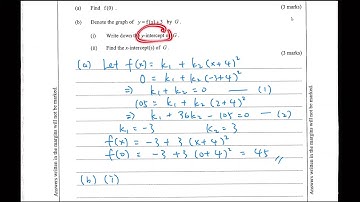 (a) Find f(0).
(3 marks)
(b) Denote the graph of y = f(x) + 3 by G.
(i) Write down the y-intercept of G.
(ii) Find the x-intercept(s) of G.
(3 marks)
(a) Let f(x) = k₁ + k₂(x+4)²
0 = k₁ + k₂(-3+4)²
k₁ + k₂ = 0 — (1)
105 = k₁ + k₂(2+4)²
k₁ + 36k₂ - 105 = 0 — (2)
k₁ = -3 k₂ = 3
f(x) = -3 + 3(x+4)²
f(0) = -3 + 3(0+4)² = 45 //
(b) (i)
Answers written in the margins will not be marked.
Answers written in the margins will not be marked.